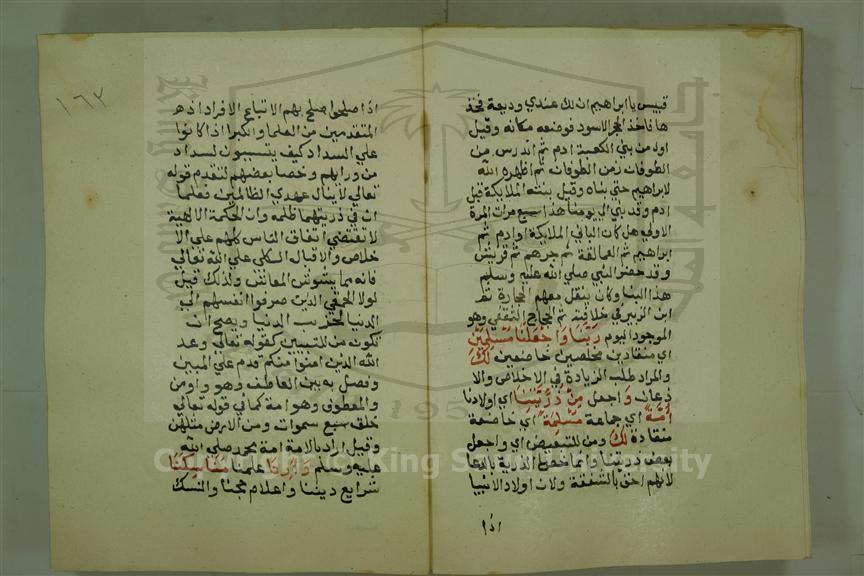 قبيس يا ابراهيم ان لك عندي وديعة فخذ
ها فاخذ الحجر الاسود فوضعه مكانه وقيل
اول من بني الكعبة ادم ثم اندرس من
الطوفان زمن الطوفان ثم اظهره الله
لابراهيم حتي بناه وقيل بنته الملايكة قبل
ادم وقد بني الي يومنا هذا سبع مرات المرة
الاولي هل كان الباني الملايكة او ادم ثم
ابراهيم ثم العمالقة ثم جرهم ثم قريش
وقد حضر النبي صلي الله عليه وسلم
هذا البنا وكان ينقل معهم الحجارة ثم
ابن الزبير في خلافته ثم الحجاج الثقفي وهو
الموجود اليوم رَبَّنَا وَاجْعَلْنَا مُسْلِمَيْنِ
اي منقادين مخلصين خاضعين لَكَ
والمراد طلب الزيادة في الاخلاص والا
ذعان وَ اجعل مِنْ ذُرِّيَّتِنَا اي اولادنا
أُمَّةً اي جماعة مُسْلِمَةً اي خاضعة
منقادة لَكَ ومن للتبعيض اي واجعل
بعض ذريتنا وانما خصا الذرية بالدعا
لانهم احق بالشفقة ولان اولاد الانبيا
اذا
١٦٣
اذا صلحوا صلح بهم الاتباع الا فراد اذ ه
المتقدمين من العلما والكبرا اذا كانوا
علي السداد كيف يتسببون لسداد
من ورايهم وخصا بعضهم لتقدم قوله
تعالي لا ينال عهدي الظالمين فعلما
ان في ذريتهما ظلمه وان الحكمة الالهية
لا تقتضي اتفاق الناس كلهم علي الا
خلاص والاقبال الكلي علي الله تعالي
فانه مما يشوش المعاش ولذلك قيل
لولا الحمقي الذين صرفوا انفسهم الي
الدنيا لخربت الدنيا ويصح ان
تكون من للتبيين كقوله تعالي وعد
الله الذين امنوا منكم قدم علي المبين
وفصل به بين العاطف وهو واو من
والمعطوف وهو امة كما في قوله تعالي
خلق سبع سموات ومن الارض مثلهن
وقيل اراد بالامة امة محمد صلي الله
عليه وسلم وَأَرِنَا علمنا مَنَاسِكَنَا
شرايع ديننا واعلام حجنا والنسك